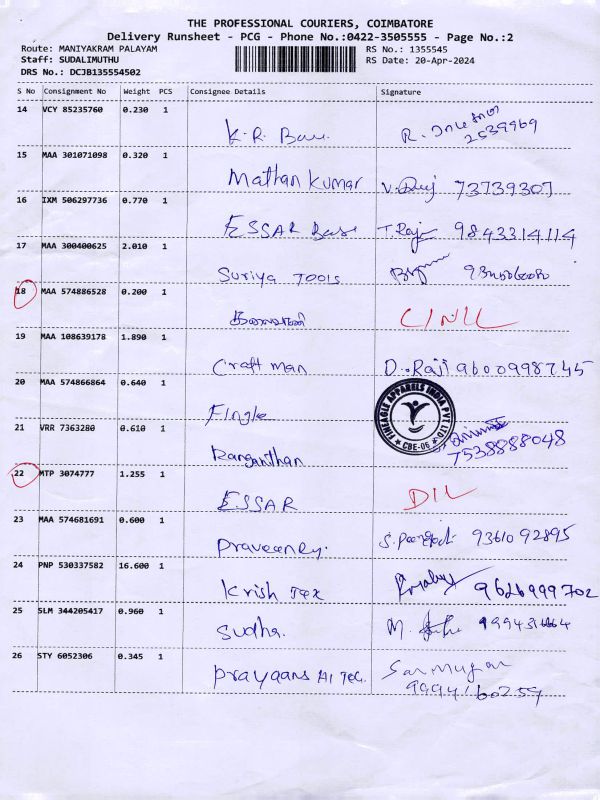 THE PROFESSIONAL COURIERS, COIMBATORE
Delivery Runsheet - PCG - Phone No.:0422-3505555 - Page No.:2
Route: MANIYAKRAM PALAYAM RS No.: 1355545
Staff: SUDALIMUTHU RS Date: 20-Apr-2024
DRS No.: DCJB135554502
S No Consignment No Weight PCS Consignee Details Signature
14 VCY 85235760 0.230 1
K.R. R. 2539969
15 MAA 301071098 0.320 1
Mathan kumar 73739307
16 IXM 506297736 0.770 1
ESSAR T. Raj 9843314114
17 MAA 300400625 2.010 1
Suriya TOOLS
18 MAA 574886528 0.200 1
19 MAA 108639178 1.890 1
Craft man D. Raji 9600998745
20 MAA 574866864 0.640 1
Fingle
FINEAGLE APPARELS INDIA PVT LTD
CBE-06
21 VRR 7363280 0.610 1
Ranganthan 7538888048
22 MTP 3074777 1.255 1
ESSAR DIL
23 MAA 574681691 0.600 1
Praveen 9361092895
24 PNP 530337582 16.600 1
Krish Tex 9626999702
25 SLM 344205417 0.960 1
Sudha.
26 STY 6052306 0.345 1
Prayaans Hi Tec. Sanmugan
9994160259